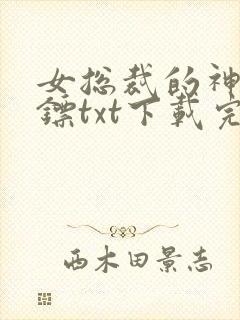 女总裁的神
镖txt下载完
西木田景志